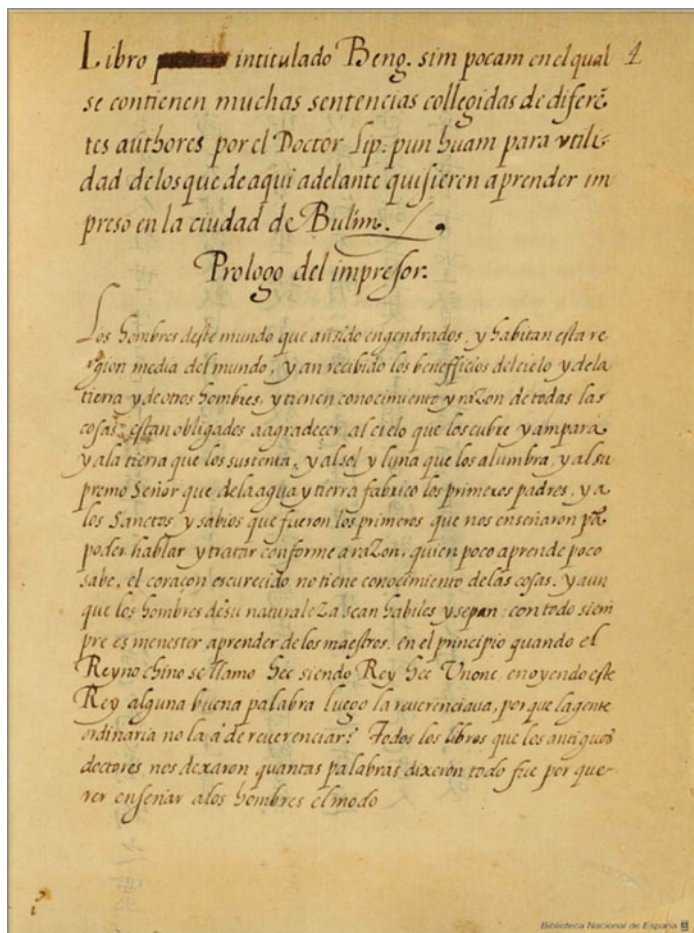 Libro intitulado Beng. sim pocam en el qual 4
se contienen muchas sentencias collegidas de diferẽ
tes authores por el Doctor Lip. pun huam para vtili-
dad delos que de aqui adelante quisieren aprender im
preso en la ciudad de Bulim.
Prologo del impresor.
Los hombres deste mundo que an sido engendrados, y habitan esta re
gion media del mundo, y an recibido los benefficios del cielo y dela
tierra y de otros hombres, y tienen conocimiento y razon de todas las
cosas, estan obligados a agradecer al cielo que los cubre y ampara
y ala tierra que los sustenta, y al sol y luna que los alumbra, y al su
premo Señor que dela agua y tierra fabrico los primeros padres, y a
los Sanctos y sabios que fueron los primeros que nos enseñaron pa
poder hablar y tratar conforme a razon, quien poco aprende poco
sabe, el coraçon escurecido no tiene conocimiento delas cosas. y aun
que los hombres de su naturaleza sean habiles y sepan: con todo siem
pre es menester aprender de los maestros. en el principio quando el
Reyno chino se llamo hee siendo Rey hee Vnone, en oyendo este
Rey alguna buena palabra luego la reuerenciaua, porque la gente
ordinaria no la a de reuerenciar? Todos los libros que los antiguos
doctores nos dexaron quantas palabras dixeron todo fue por que-
rer enseñar alos hombres el modo
Biblioteca Nacional de España